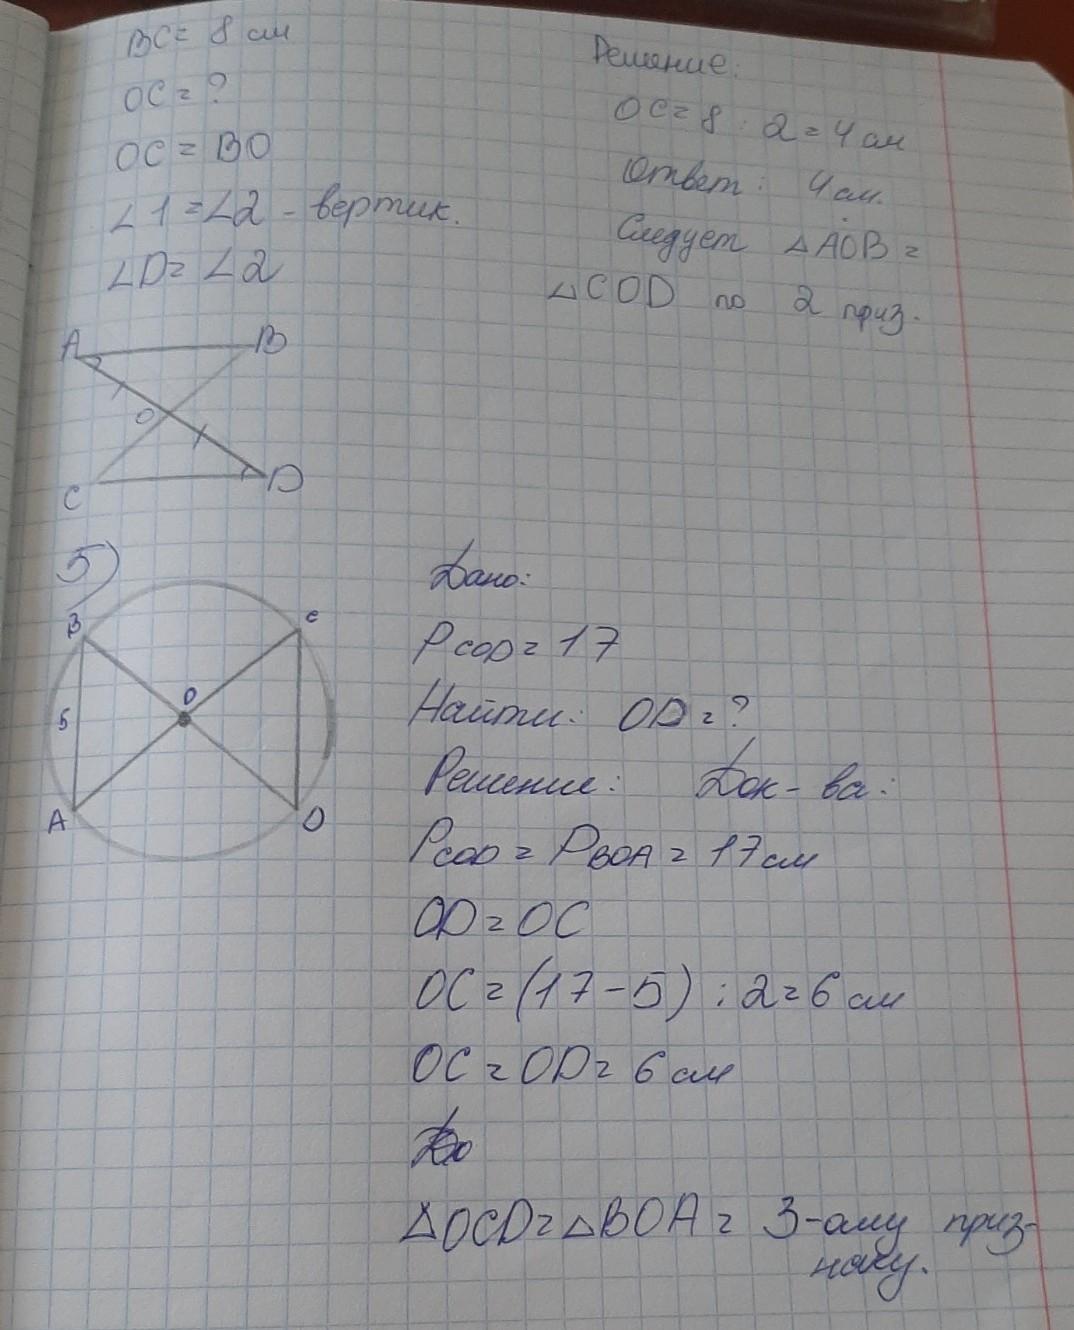 BC = 8 см
OC = ?
OC = BO
∠1 = ∠2 - вертик.
∠D = ∠2
Решение:
OC = 8 : 2 = 4 см
Ответ: 4 см.
Следует △AOB =
△COD по 2 приз.
A B
O
C D
5)
B C
O
5
A D
Дано:
PCOD = 17
Найти: OD = ?
Решение: Док-ва:
PCOD = PBOA = 17 см
OD = OC
OC = (17 - 5) : 2 = 6 см
OC = OD = 6 см
△OCD = △BOA = 3-ому приз-
наку.